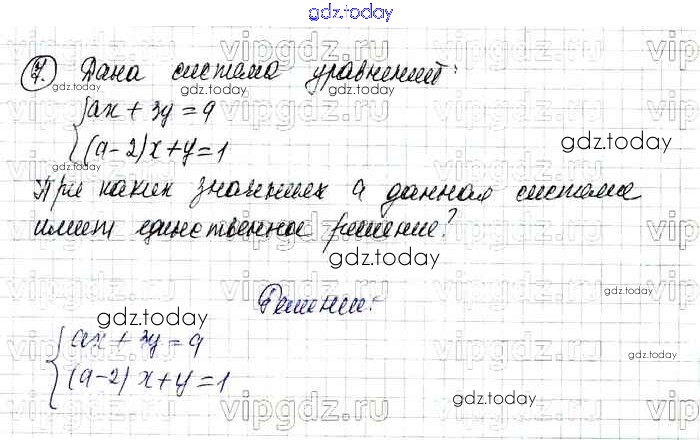 gdz.today
7. Дана система уравнений:
ax + 3y = 9
(a-2)x + y = 1
При каких значениях a данная система
имеет единственное решение?
Решение:
ax + 3y = 9
(a-2)x + y = 1
gdz.today
gdz.today
gdz.today
gdz.today
gdz.today
gdz.today
gdz.today
gdz.today
vipgdz.ru
vipgdz.ru
vipgdz.ru
vipgdz.ru